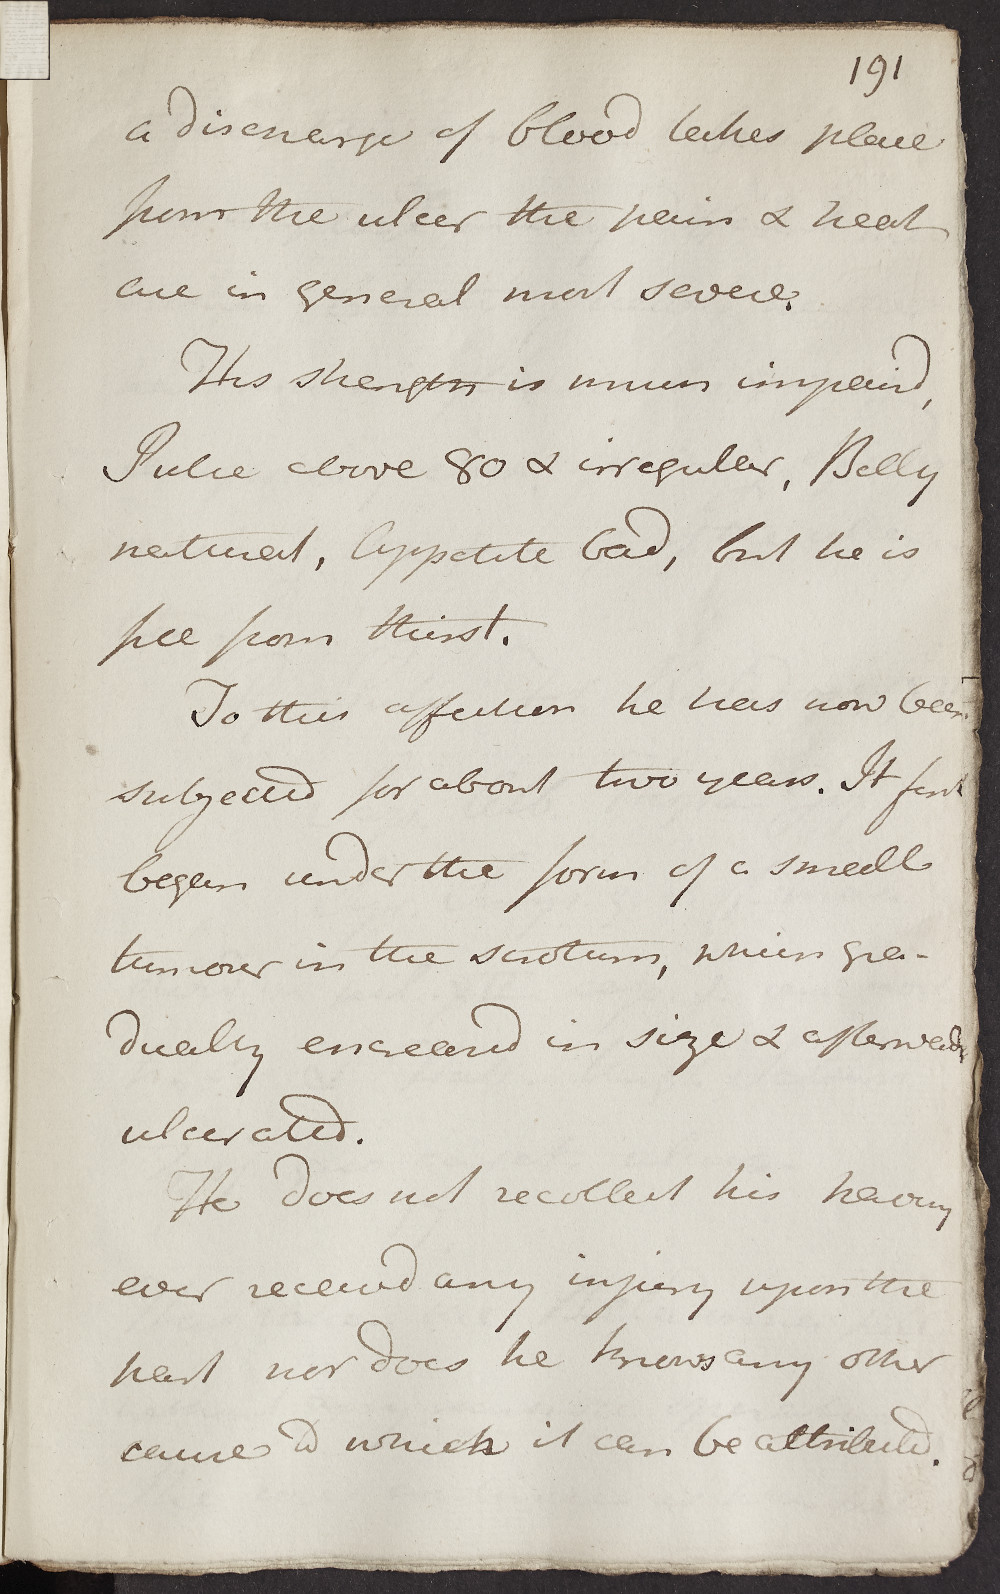 191
a discharge of blood takes place
from the ulcer the pain & heat
are in general most severe.
His strength is much impaird,
Pulse above 80 & irregular, Belly
natural, Appetite bad, but he is
free from thirst.
To this affection he has now been
subjected for about two years. It first
began under the form of a small
tumour in the scrotum, which gra-
dually encreased in size & afterwards
ulcerated.
He does not recollect his having
ever received any injury upon the
part nor does he know any other
cause to which it can be attributed.